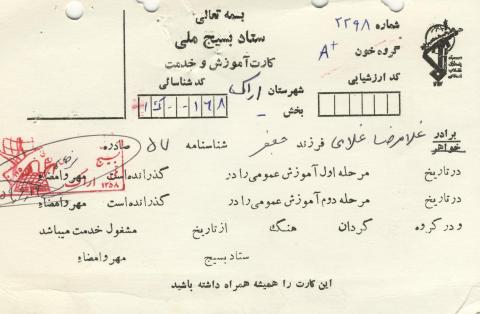 بسمه تعالی
شماره ۲۲۹۸
ستاد بسیج ملی
گروه خون A+
کارت آموزش و خدمت
کد ارزشیابی
شهرستان اراک
کد شناسائی
بخش
۱۶۸
برادر خواهر غلامرضا غلامی فرزند جعفر شناسنامه ۵۷ صادره
در تاریخ مرحله اول آموزش عمومی را در گذرانده است مهر و امضاء
در تاریخ مرحله دوم آموزش عمومی را در گذرانده است مهر و امضاء
و در گروه گردان هنگ از تاریخ مشغول خدمت میباشد
ستاد بسیج مهر و امضاء
این کارت را همیشه همراه داشته باشید
بسیج
اراک
۱۳۵۸